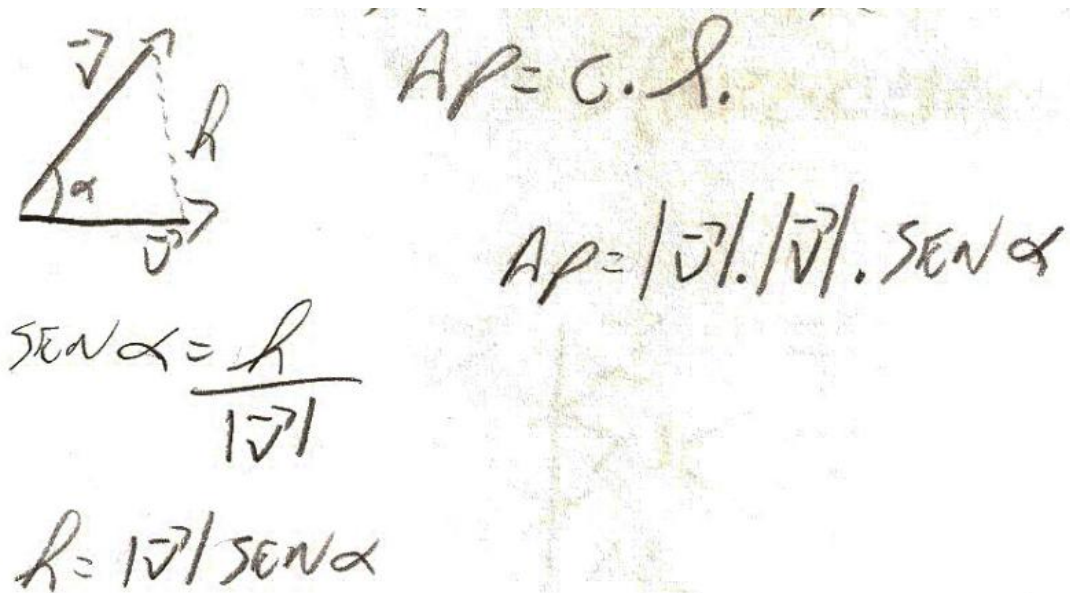 v⃗
h
α
u⃗
Ap = C. l.
Ap = |u⃗|.|v⃗|. SEN α
SEN α = h
|v⃗|
h = |v⃗| SEN α